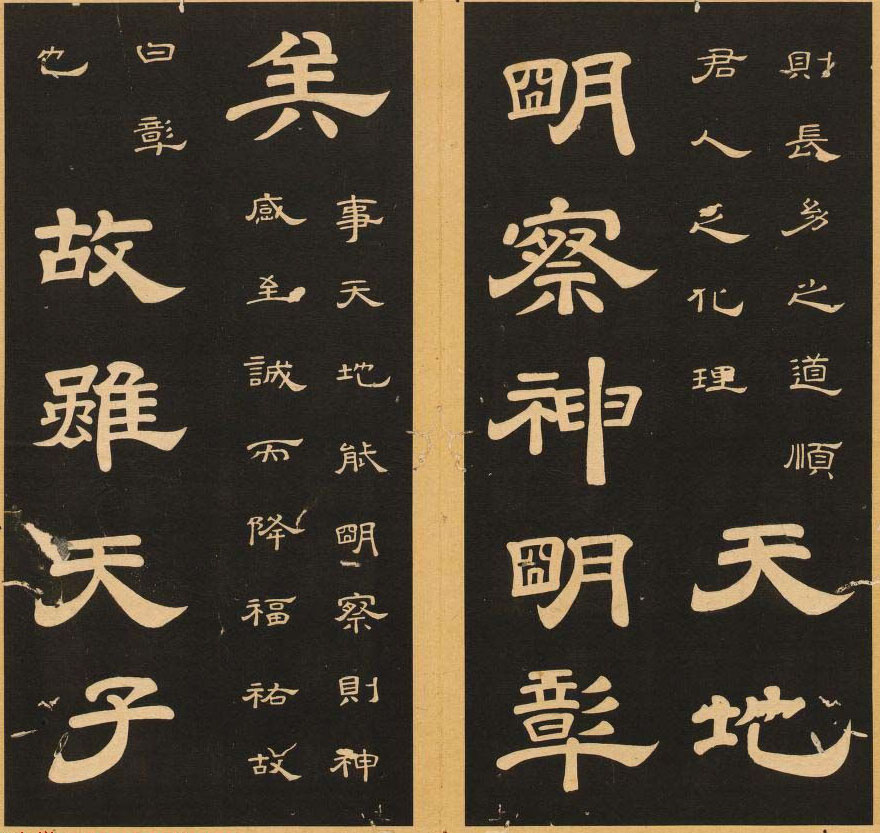 則長幼之道順
君人之化理
天地
明察神明彰
矣
事天地能明察則神
感至誠而降福祐故
曰彰
也
故雖天子